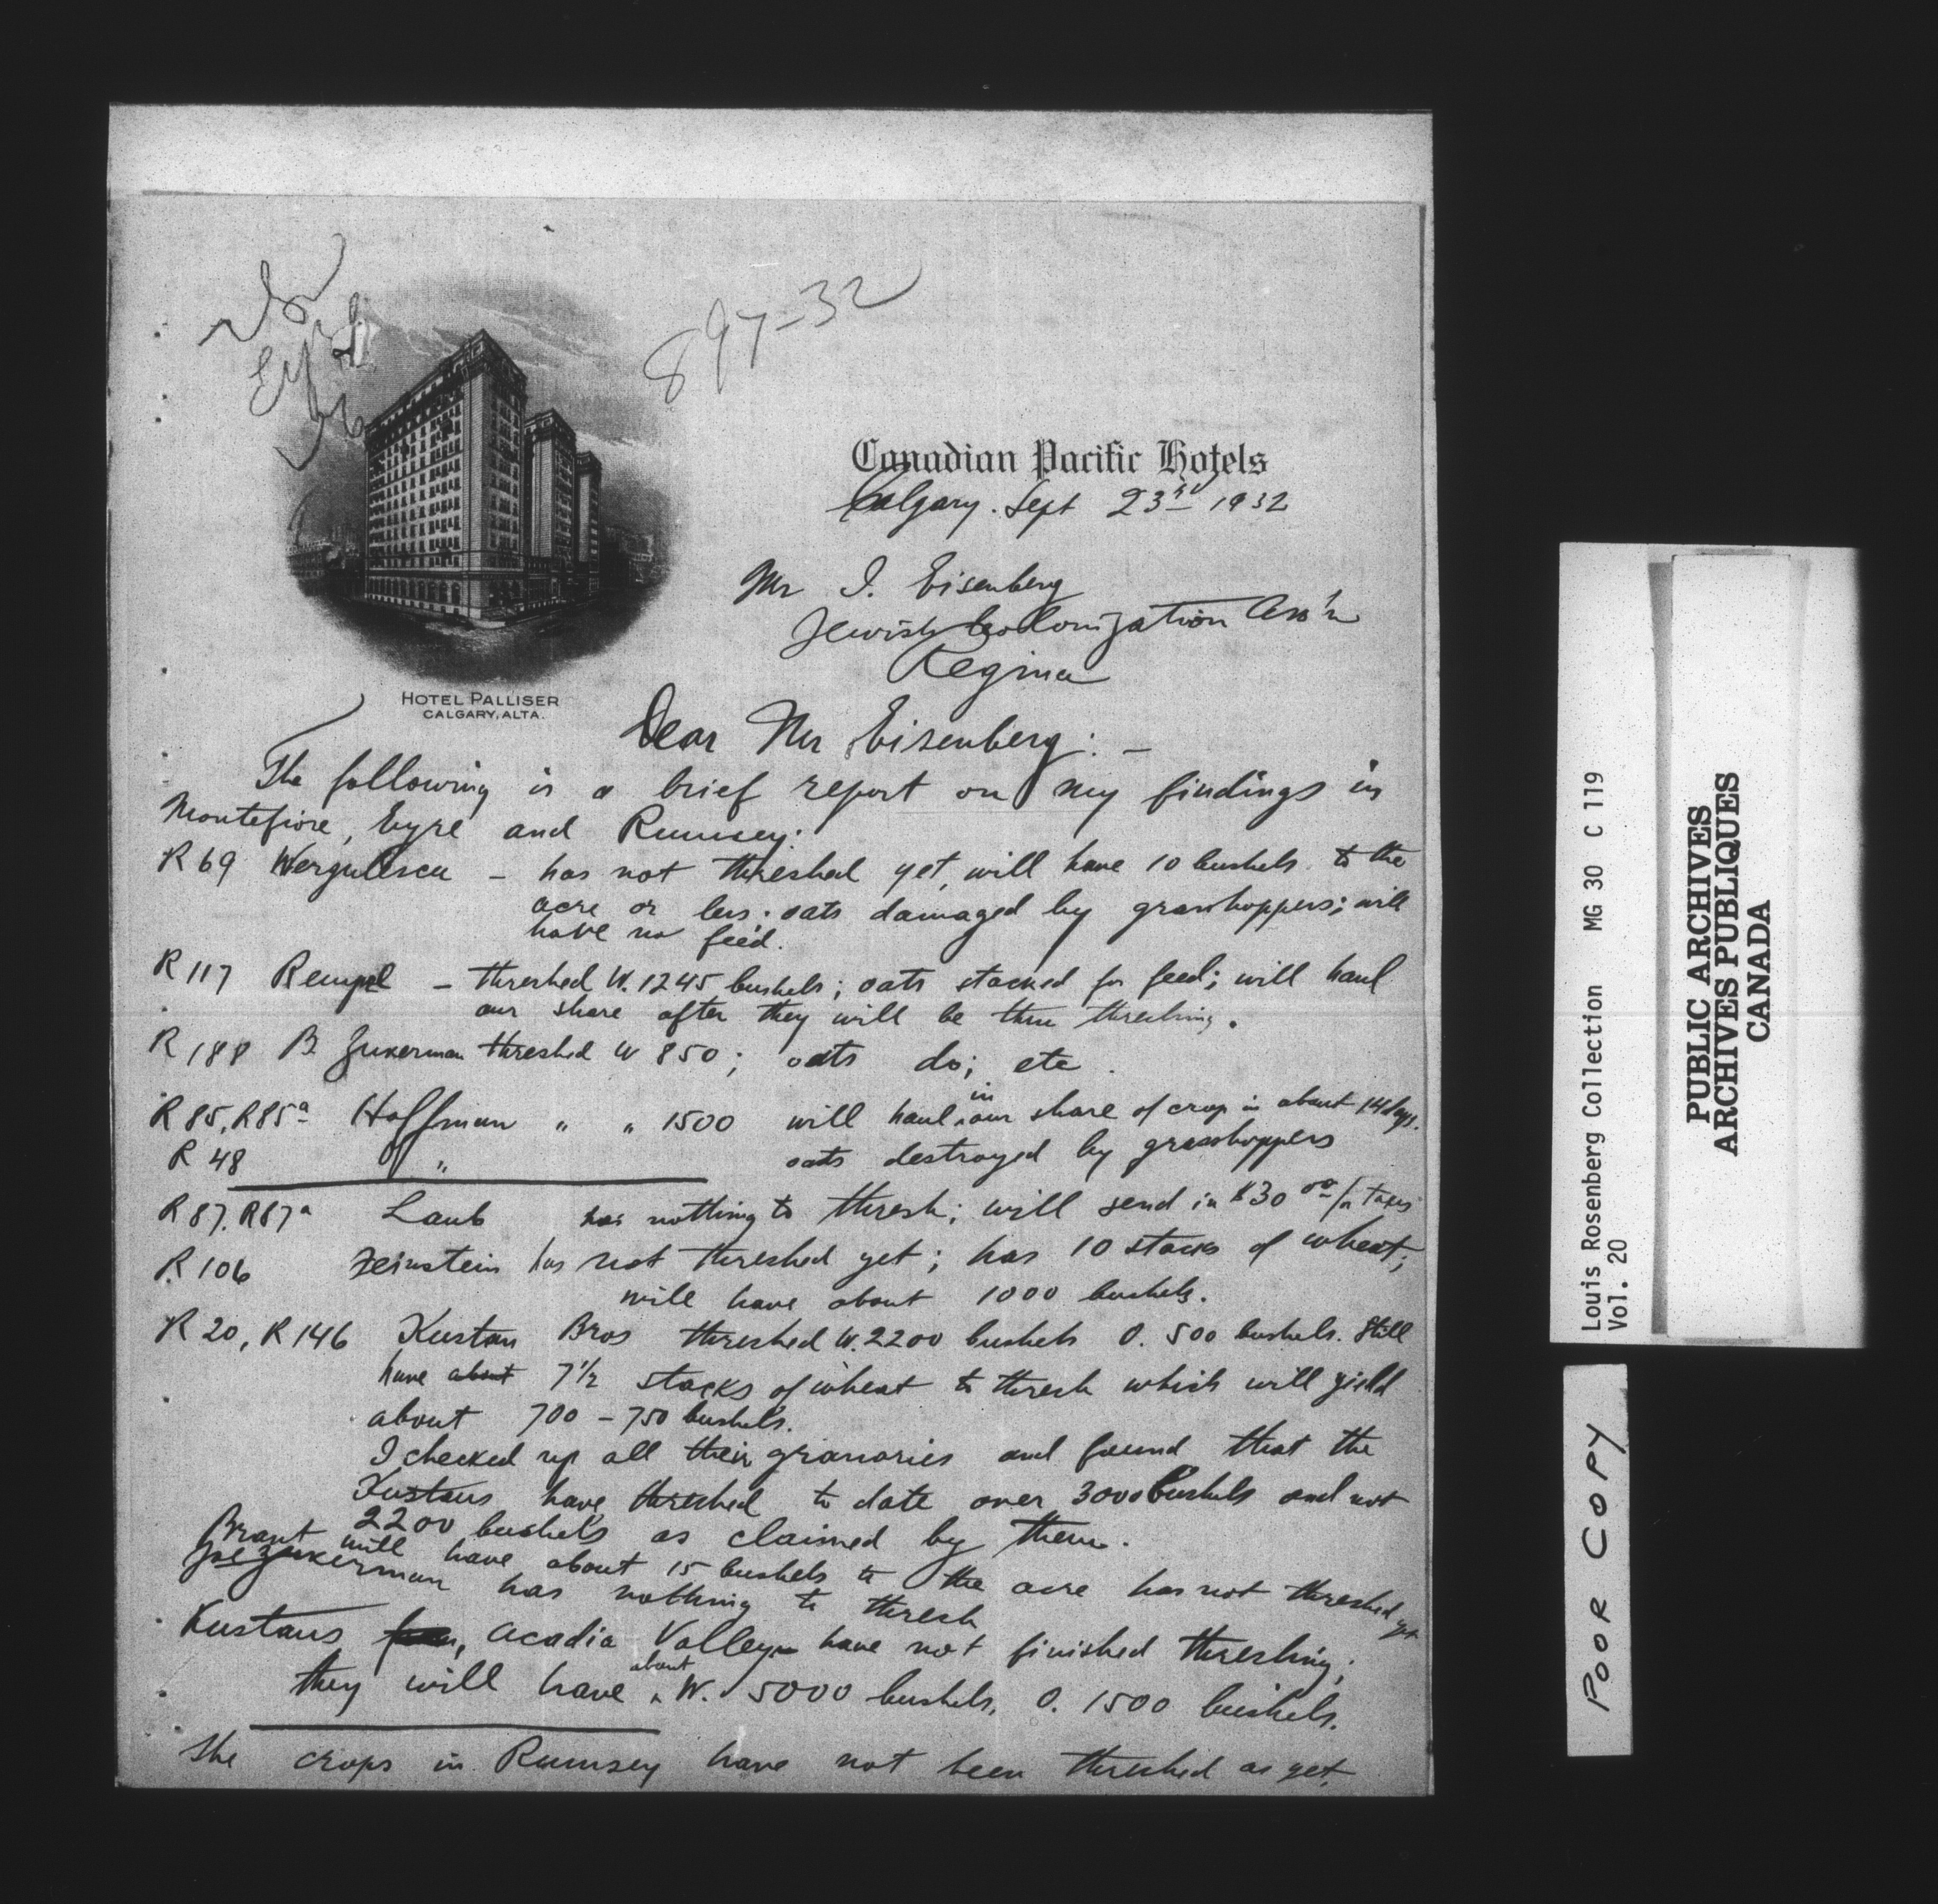 897-32
Canadian Pacific Hotels
Calgary. Sept 23rd 1932
Mr I. Eisenberg
Jewish Colonization Ass'n
Regina
HOTEL PALLISER
CALGARY, ALTA.
Dear Mr Eisenberg: -
The following is a brief report on my findings in
Montefiore, Eyre and Rumsey:
R 69 Wergulescu - has not threshed yet, will have 10 bushels to the
acre or less; oats damaged by grasshoppers; will
have no feed.
R 117 Rempel - threshed W. 1245 bushels; oats stacked for feed; will haul
our share after they will be thru threshing.
R 188 B Zukerman threshed W 850; oats do; etc.
R 85, R85a Hoffman " " 1500 will haul in our share of crop in about 14 days.
R 48 " oats destroyed by grasshoppers
R 87, R87a Laub has nothing to thresh; will send in $30 00 for taxes
R 106 Feinstein has not threshed yet; has 10 stacks of wheat;
will have about 1000 bushels.
R 20, R 146 Kustan Bros threshed W. 2200 bushels O. 500 bushels. Still
have about 7 1/2 stacks of wheat to thresh which will yield
about 700 - 750 bushels.
I checked up all their granaries and found that the
Kustans have threshed to date over 3000 bushels and not
2200 bushels as claimed by them.
Brant will have about 15 bushels to the acre has not threshed yet
Joe Zukerman has nothing to thresh
Kustans, Acadia Valley - have not finished threshing;
they will have about W. 5000 bushels, O. 1500 bushels.
The crops in Rumsey have not been threshed as yet.
Louis Rosenberg Collection MG 30 C 119
Vol. 20
PUBLIC ARCHIVES
ARCHIVES PUBLIQUES
CANADA
POOR COPY